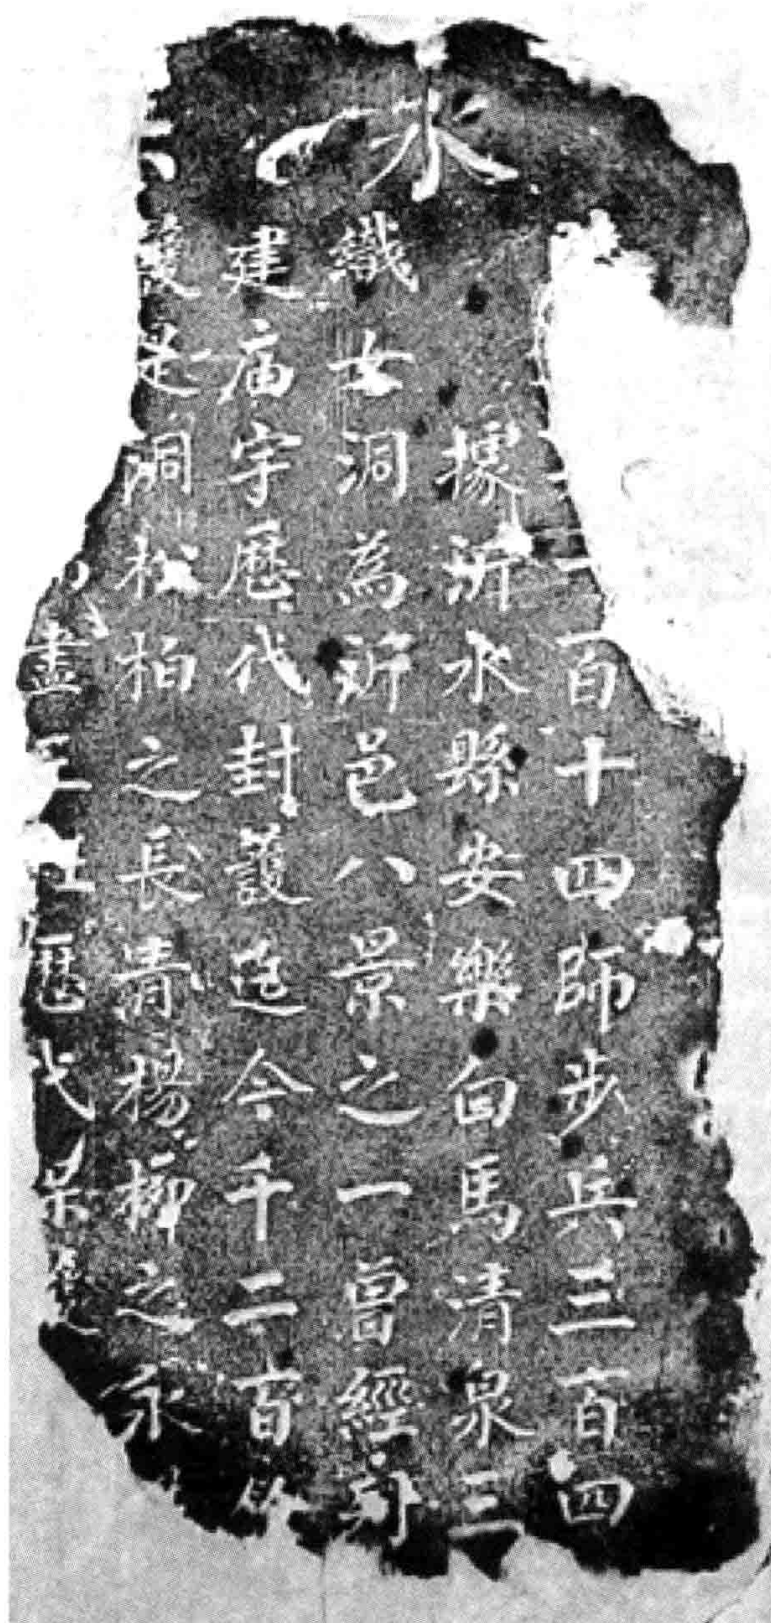 水
百十四師步兵三百四
據沂水縣安樂白馬清泉三
織女洞為沂邑八景之一曾經
建庙宇歷代封護迄今千二百
是洞松柏之長青楊柳之永
畫歷代